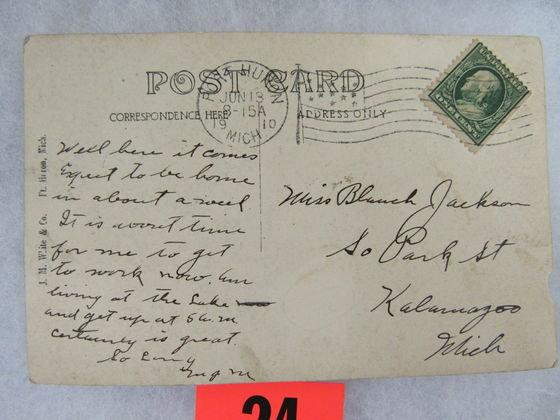 POST CARD
CORRESPONDENCE HERE
ADDRESS ONLY
PORT HURON
JUN 13
8-15A
1910
MICH
J. M. White & Co. Pt. Huron, Mich.
Well here it comes
Expect to be home
in about a week
It is about time
for me to get
to work now. am
living at the Lake
and get up at 5 a.m
certainly is great.
So Long
Miss Blanch Jackson
So Park St
Kalamazoo
Mich
24